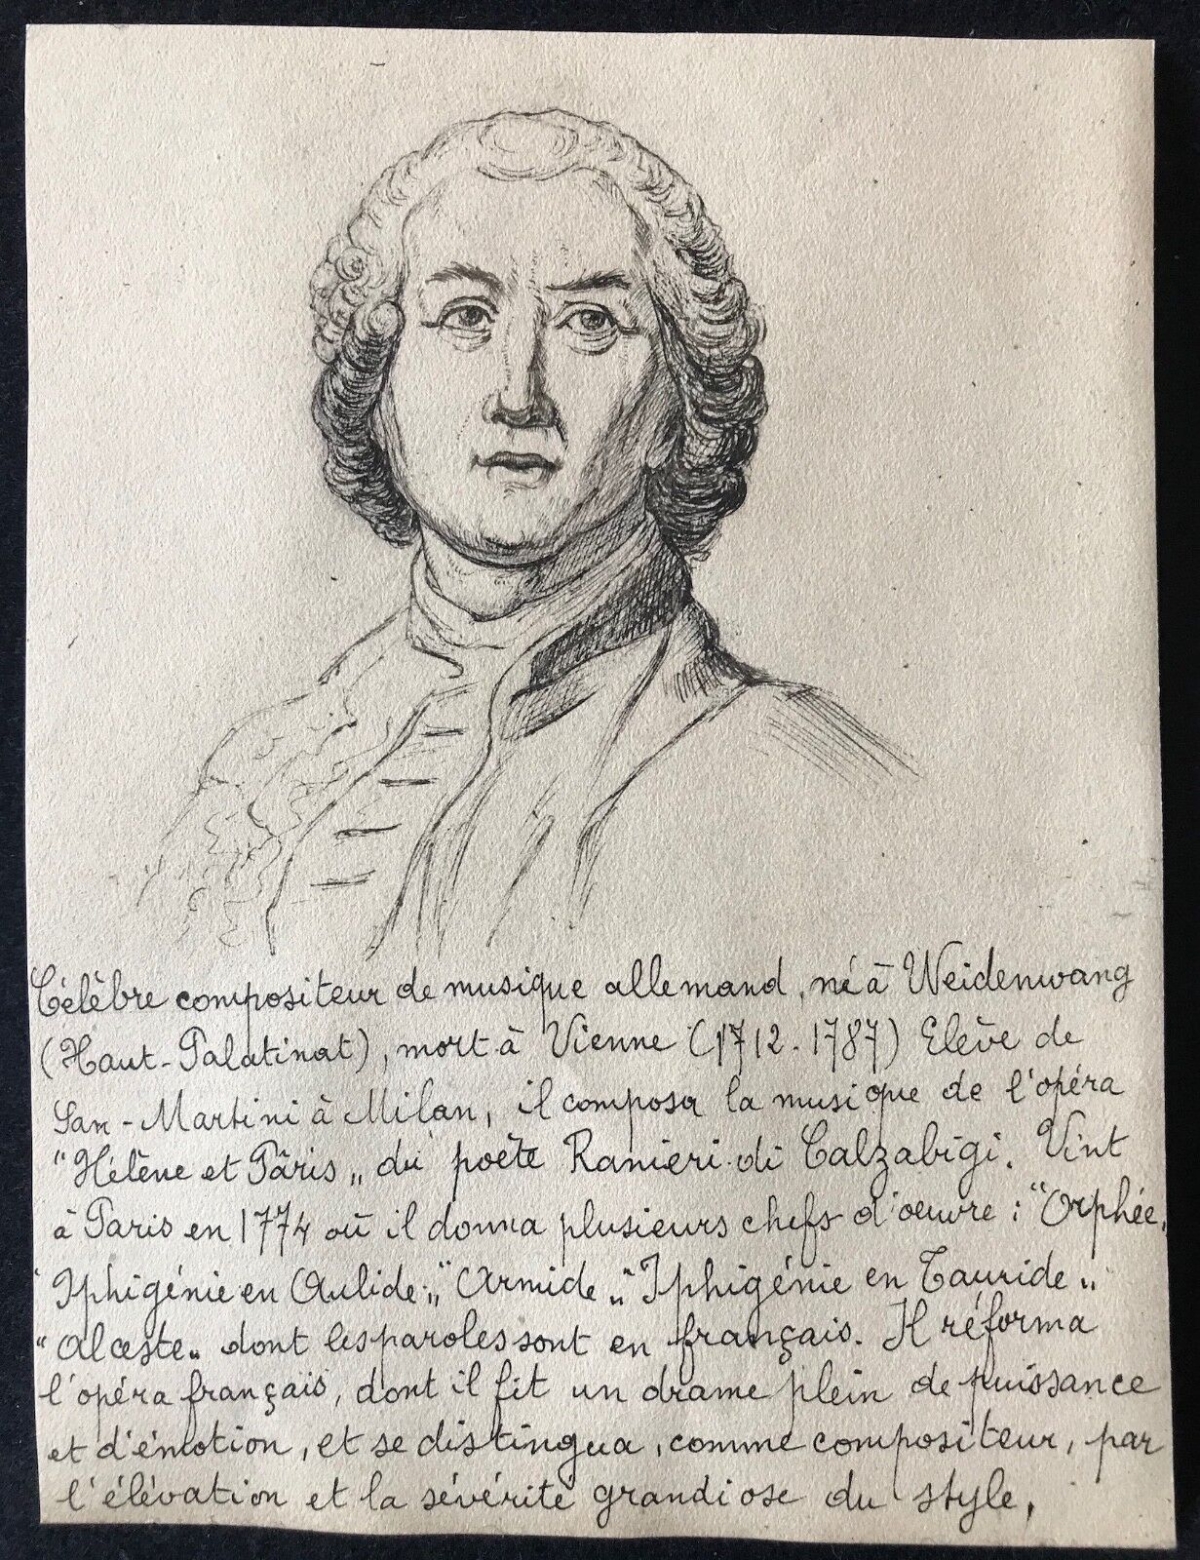 Célèbre compositeur de musique allemand, né à Weidenwang
(Haut-Palatinat), mort à Vienne (1712-1787) Elève de
San-Martini à Milan, il composa la musique de l'opéra
"Hélène et Pâris„ du poète Ranieri di Calzabigi. Vint
à Paris en 1774 où il donna plusieurs chefs d'oeuvre : "Orphée,
"Iphigénie en Aulide„ "Armide„ "Iphigénie en Tauride„
"Alceste„ dont les paroles sont en français. Il réforma
l'opéra français, dont il fit un drame plein de puissance
et d'émotion, et se distingua, comme compositeur, par
l'élévation et la sévérité grandiose du style,